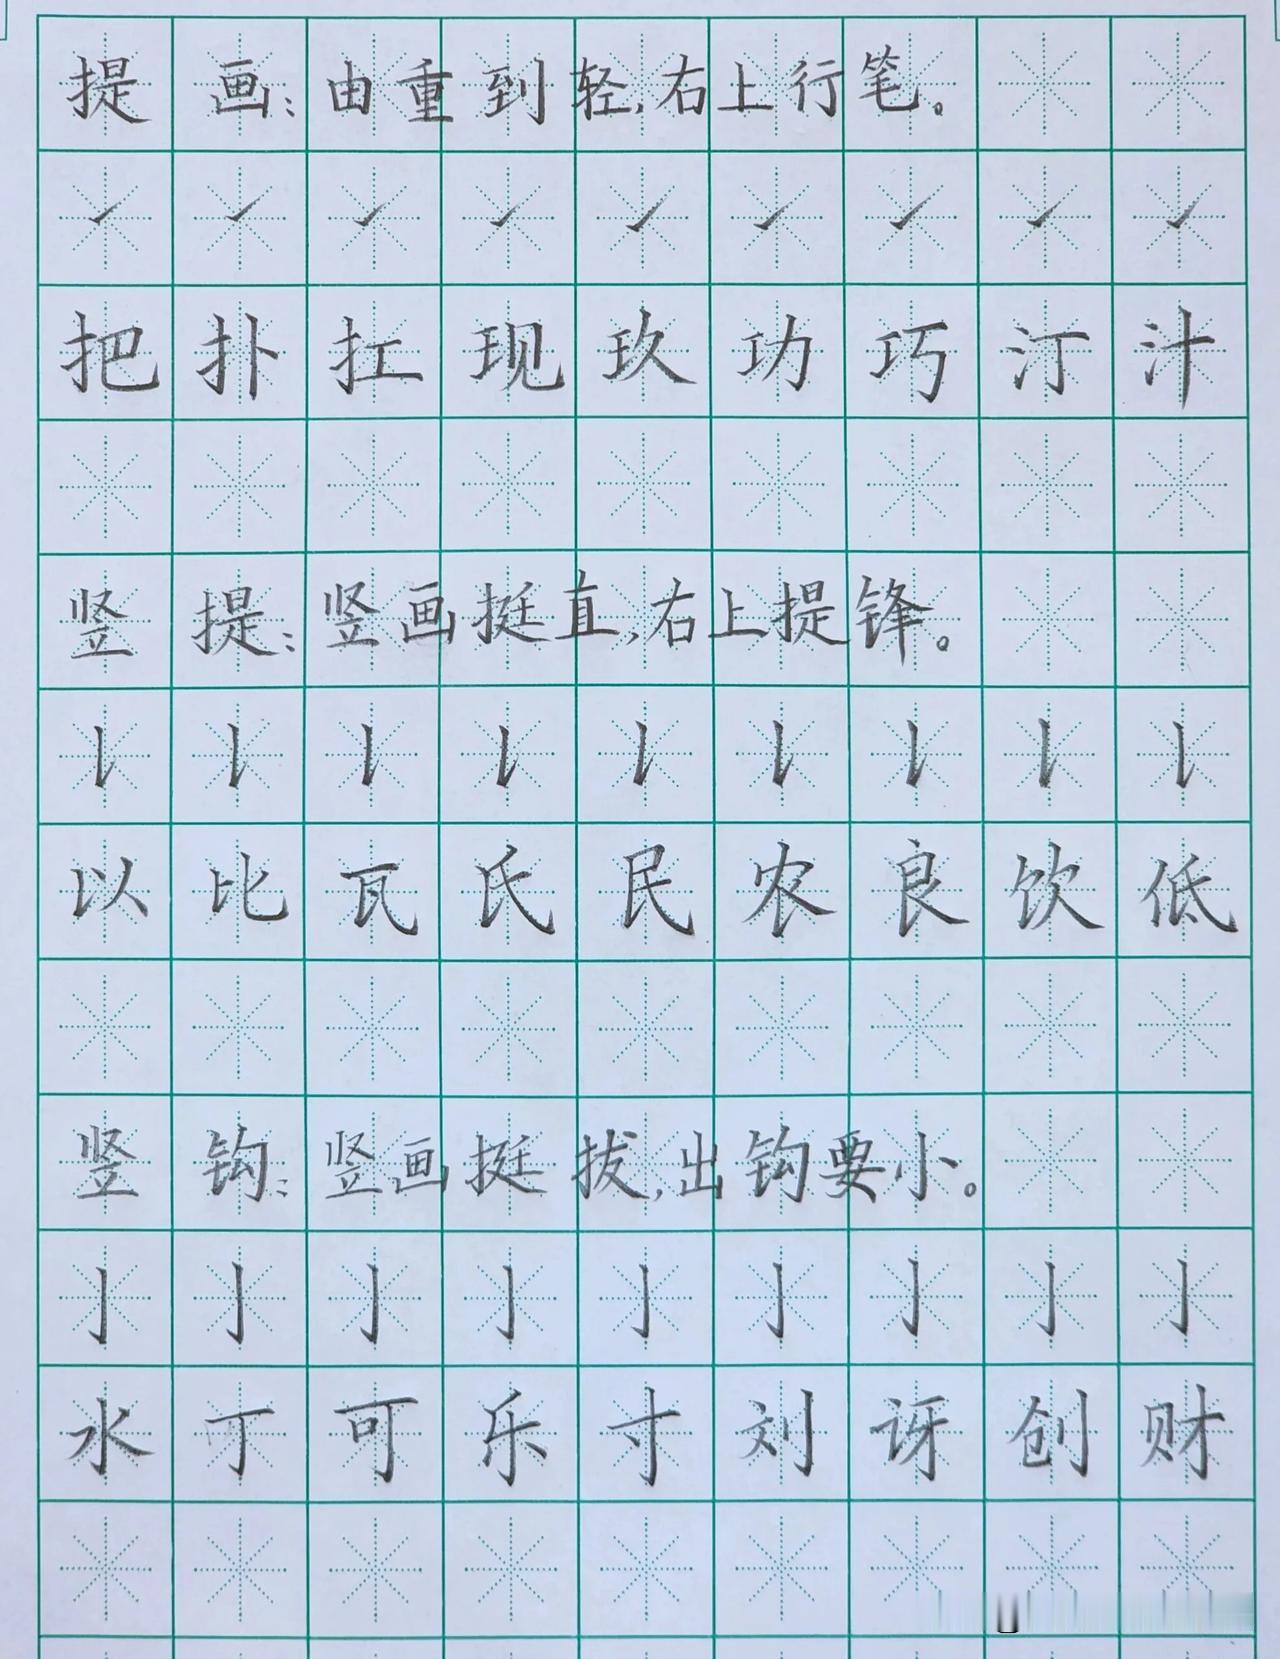 提画：由重到轻，右上行笔。
㇀㇀㇀㇀㇀㇀㇀㇀㇀
把扑扛现玖功巧汀汁
竖提：竖画挺直，右上提锋。
𠄌𠄌𠄌𠄌𠄌𠄌𠄌𠄌𠄌
以比瓦氏民农良饮低
竖钩：竖画挺拔，出钩要小。
亅亅亅亅亅亅亅亅亅
水丁可乐寸刘讶创财